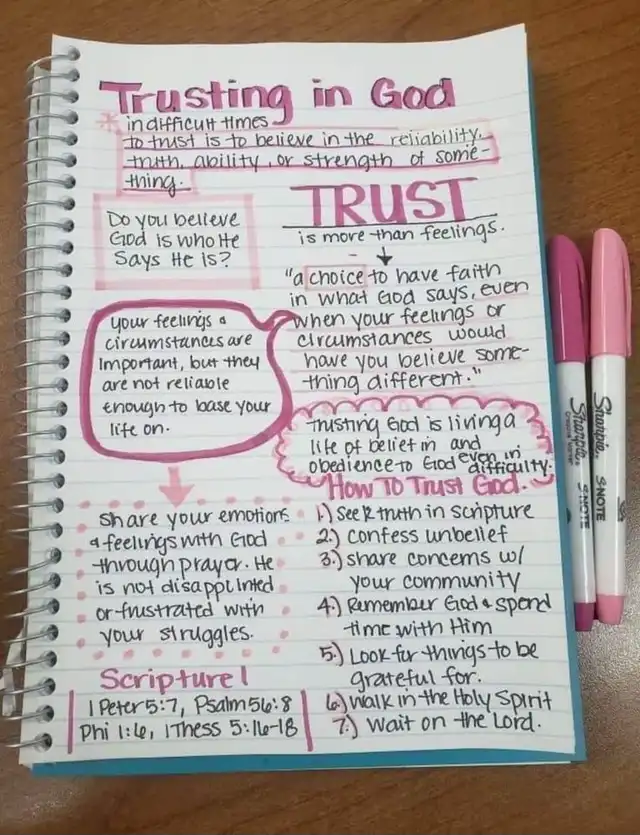 Trusting in God
* in difficult times
to trust is to believe in the reliability,
truth, ability, or strength of some-
thing.
Do you believe
God is who He
Says He is?
TRUST
is more than feelings.
"a choice to have faith
in what God says, even
when your feelings or
circumstances would
have you believe some-
thing different."
Your feelings &
circumstances are
important, but they
are not reliable
enough to base your
life on.
Trusting God is living a
life of belief in and
obedience to God even in
difficulty.
Share your emotions
& feelings with God
through prayer. He
is not disappointed
or frustrated with
your struggles.
How To Trust God.
1.) Seek truth in scripture
2.) Confess unbelief
3.) share concerns w/
your community
4.) Remember God & spend
time with Him
5.) Look for things to be
grateful for.
6.) Walk in the Holy Spirit
7.) Wait on the Lord.
Scripture!
1 Peter 5:7, Psalm 56:8
Phi 1:6, 1Thess 5:16-18
Sharpie
S·NOTE
Sharpie
S·NOTE